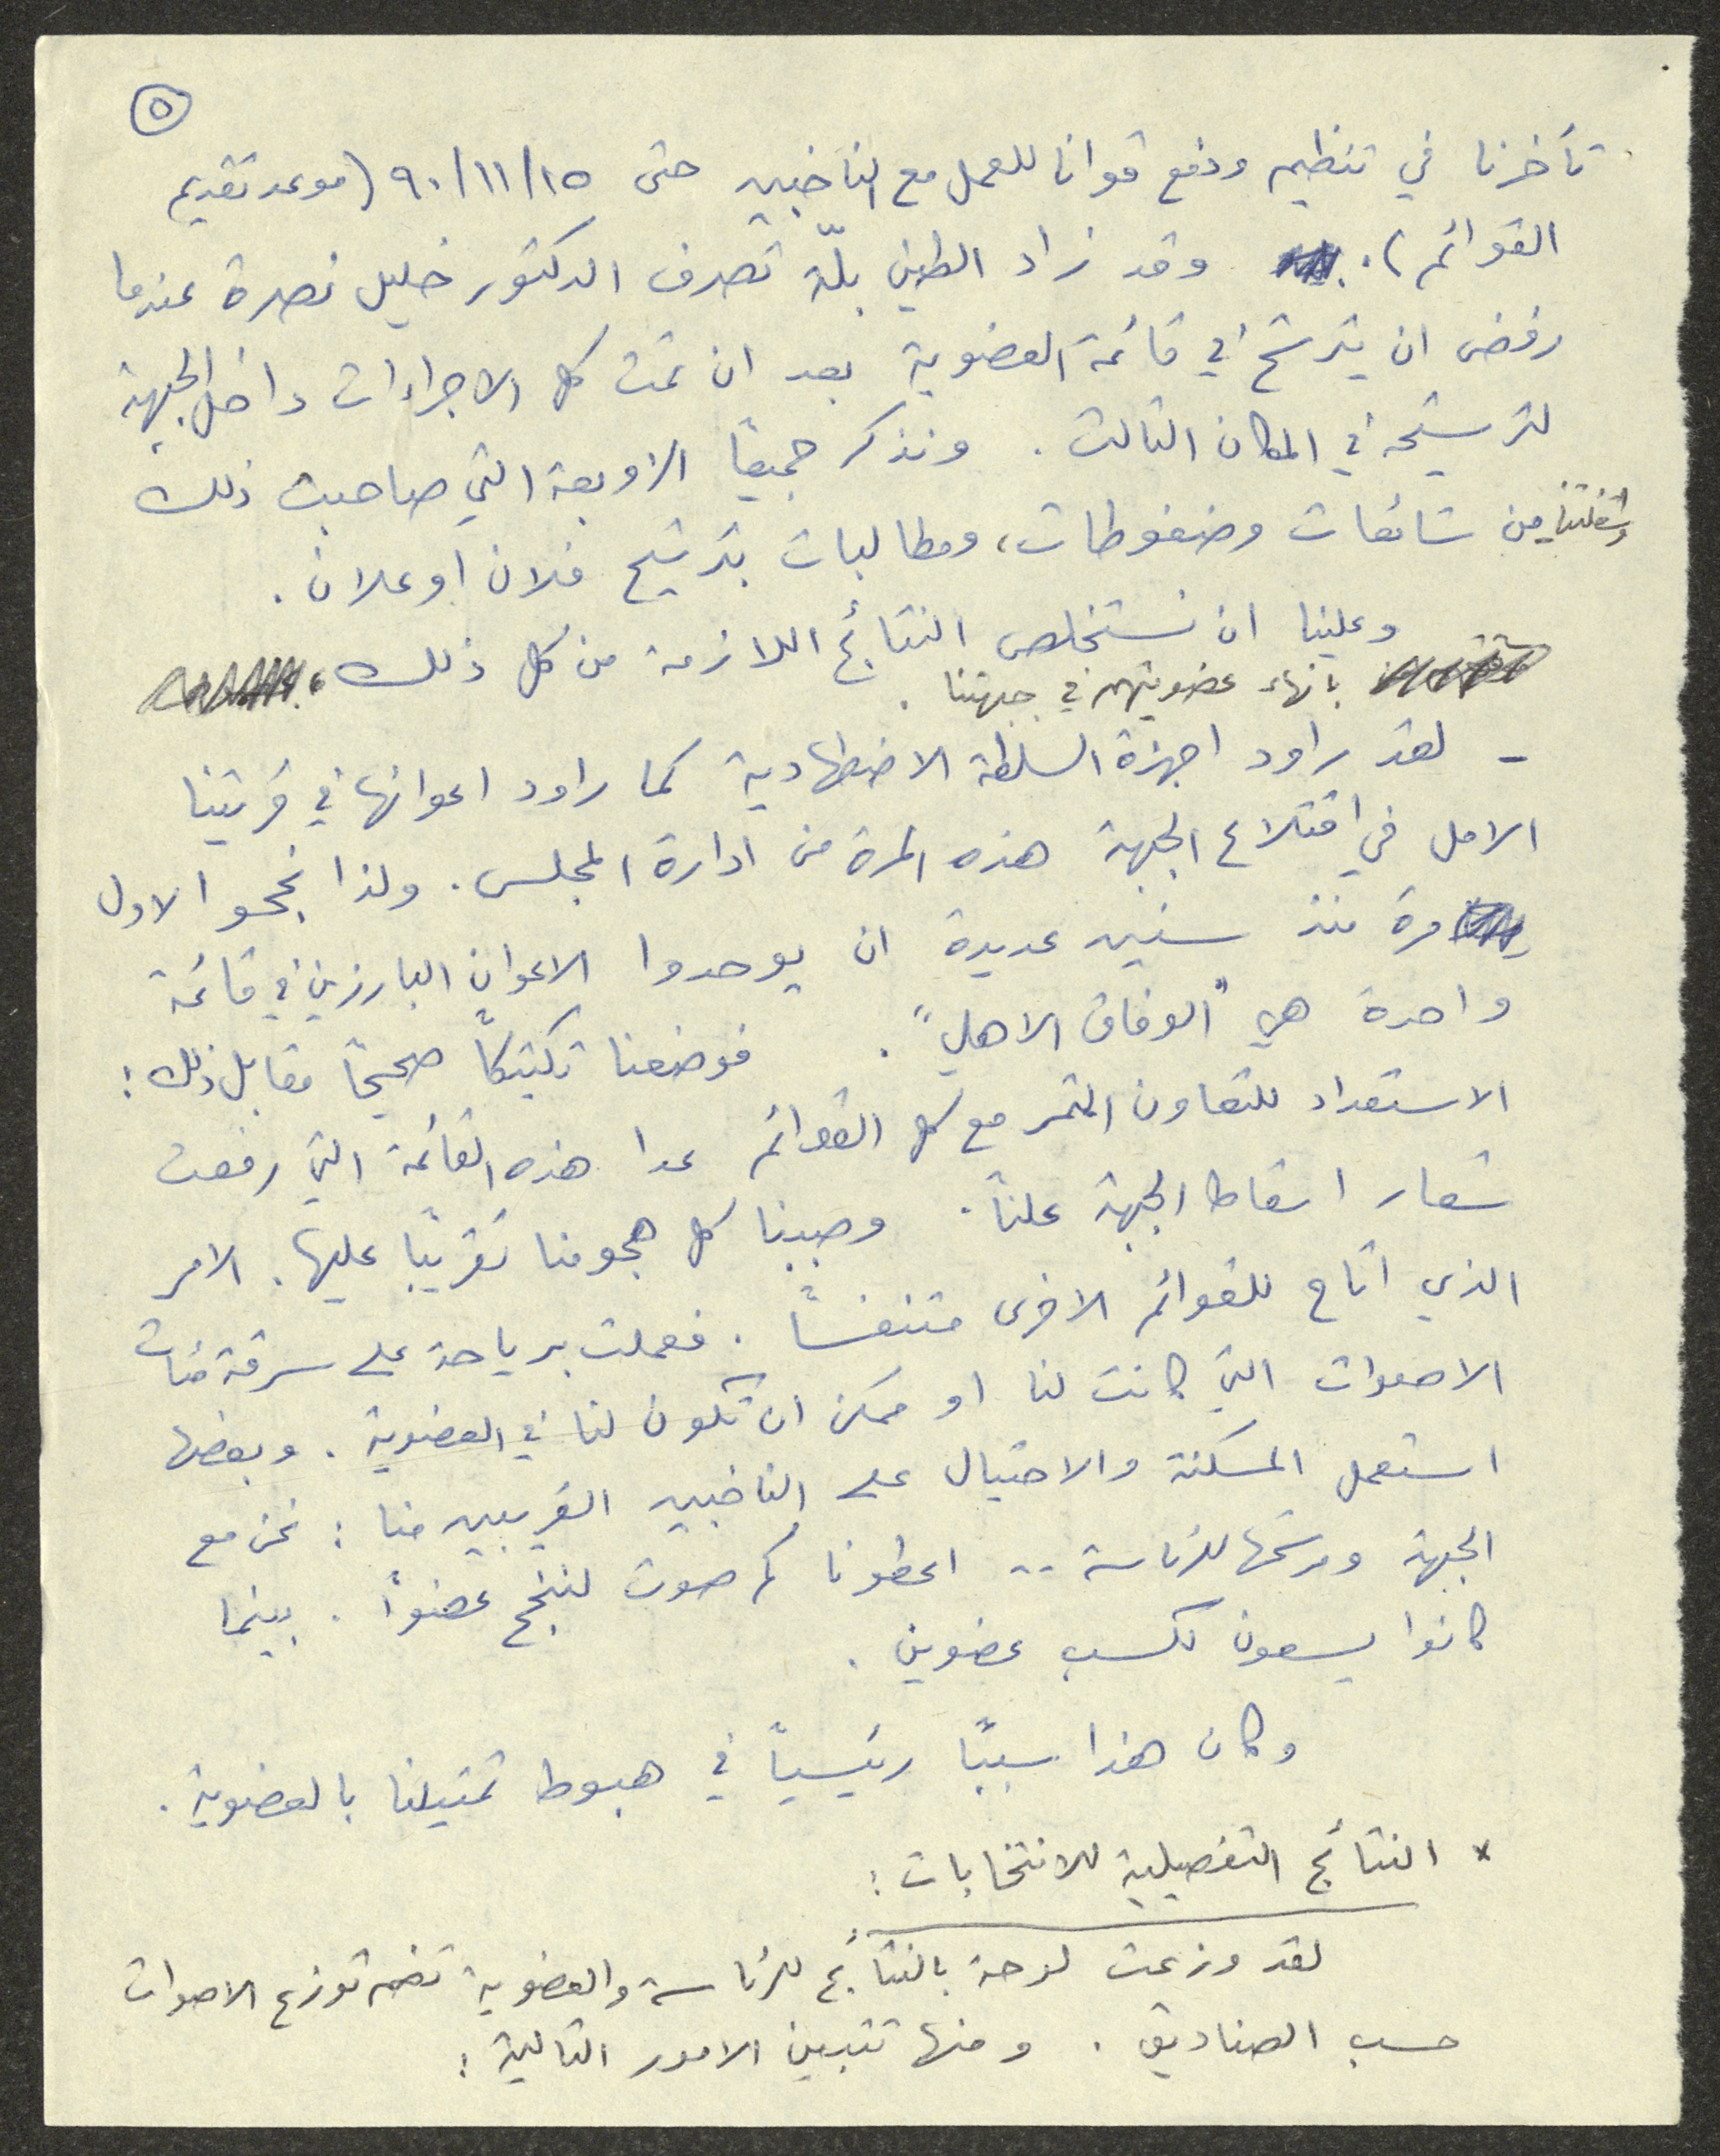 ٥
تأخرنا في تنظيم ودفع قوانا للعمل مع الناخبين حتى ٩٠/١١/١٥ (موعد تقديم
القوائم). وقد زاد الطين بلّة تصرف الدكتور خليل نصرة عندما
رفض ان يترشح في قائمة العضوية بعد ان تمت كل الاجراءات داخل الجبهة
لترشيحه في المكان الثالث. ونذكر جميعًا الزوبعة التي صاحبت ذلك
وشغلتنا من شائعات وضغوطات، ومطالبات بترشيح فلان او علان.
وعلينا ان نستخلص النتائج اللازمة من كل ذلك،
بانهاء عضويتهم في جبهتنا.
- لقد راود اجهزة السلطة الاضطهادية كما راود اعوانها في قريتنا
الامل في اقتلاع الجبهة هذه المرة من ادارة المجلس. ولذا نجحوا لاول
مرة منذ سنين عديدة ان يوحدوا الاعوان البارزين في قائمة
واحدة هي "الوفاق الاهلي". فوضعنا تكتيكًا صحيحًا مقابل ذلك:
الاستعداد للتعاون المثمر مع كل القوائم عدا هذه القائمة التي رفعت
شعار اسقاط الجبهة علنًا. وصببنا كل هجومنا تقريبًا عليها. الامر
الذي اتاح للقوائم الاخرى متنفسًا. فعملت برياحة على سرقة مئات
الاصوات التي كانت لنا او ممكن ان تكون لنا في العضوية. وبعضها
استعمل المسكنة والاحتيال على الناخبين القريبين منا: نحن مع
الجبهة ومرشحها للرئاسة .. اعطونا كم صوت لننجح عضوًا. بينما
كانوا يسعون لكسب عضوين.
وكان هذا سببًا رئيسيًا في هبوط تمثيلنا بالعضوية.
* النتائج التفصيلية للانتخابات:
لقد وزعت لوحة بالنتائج للرئاسة والعضوية تضم توزع الاصوات
حسب الصناديق. ومنها تتبين الامور التالية: